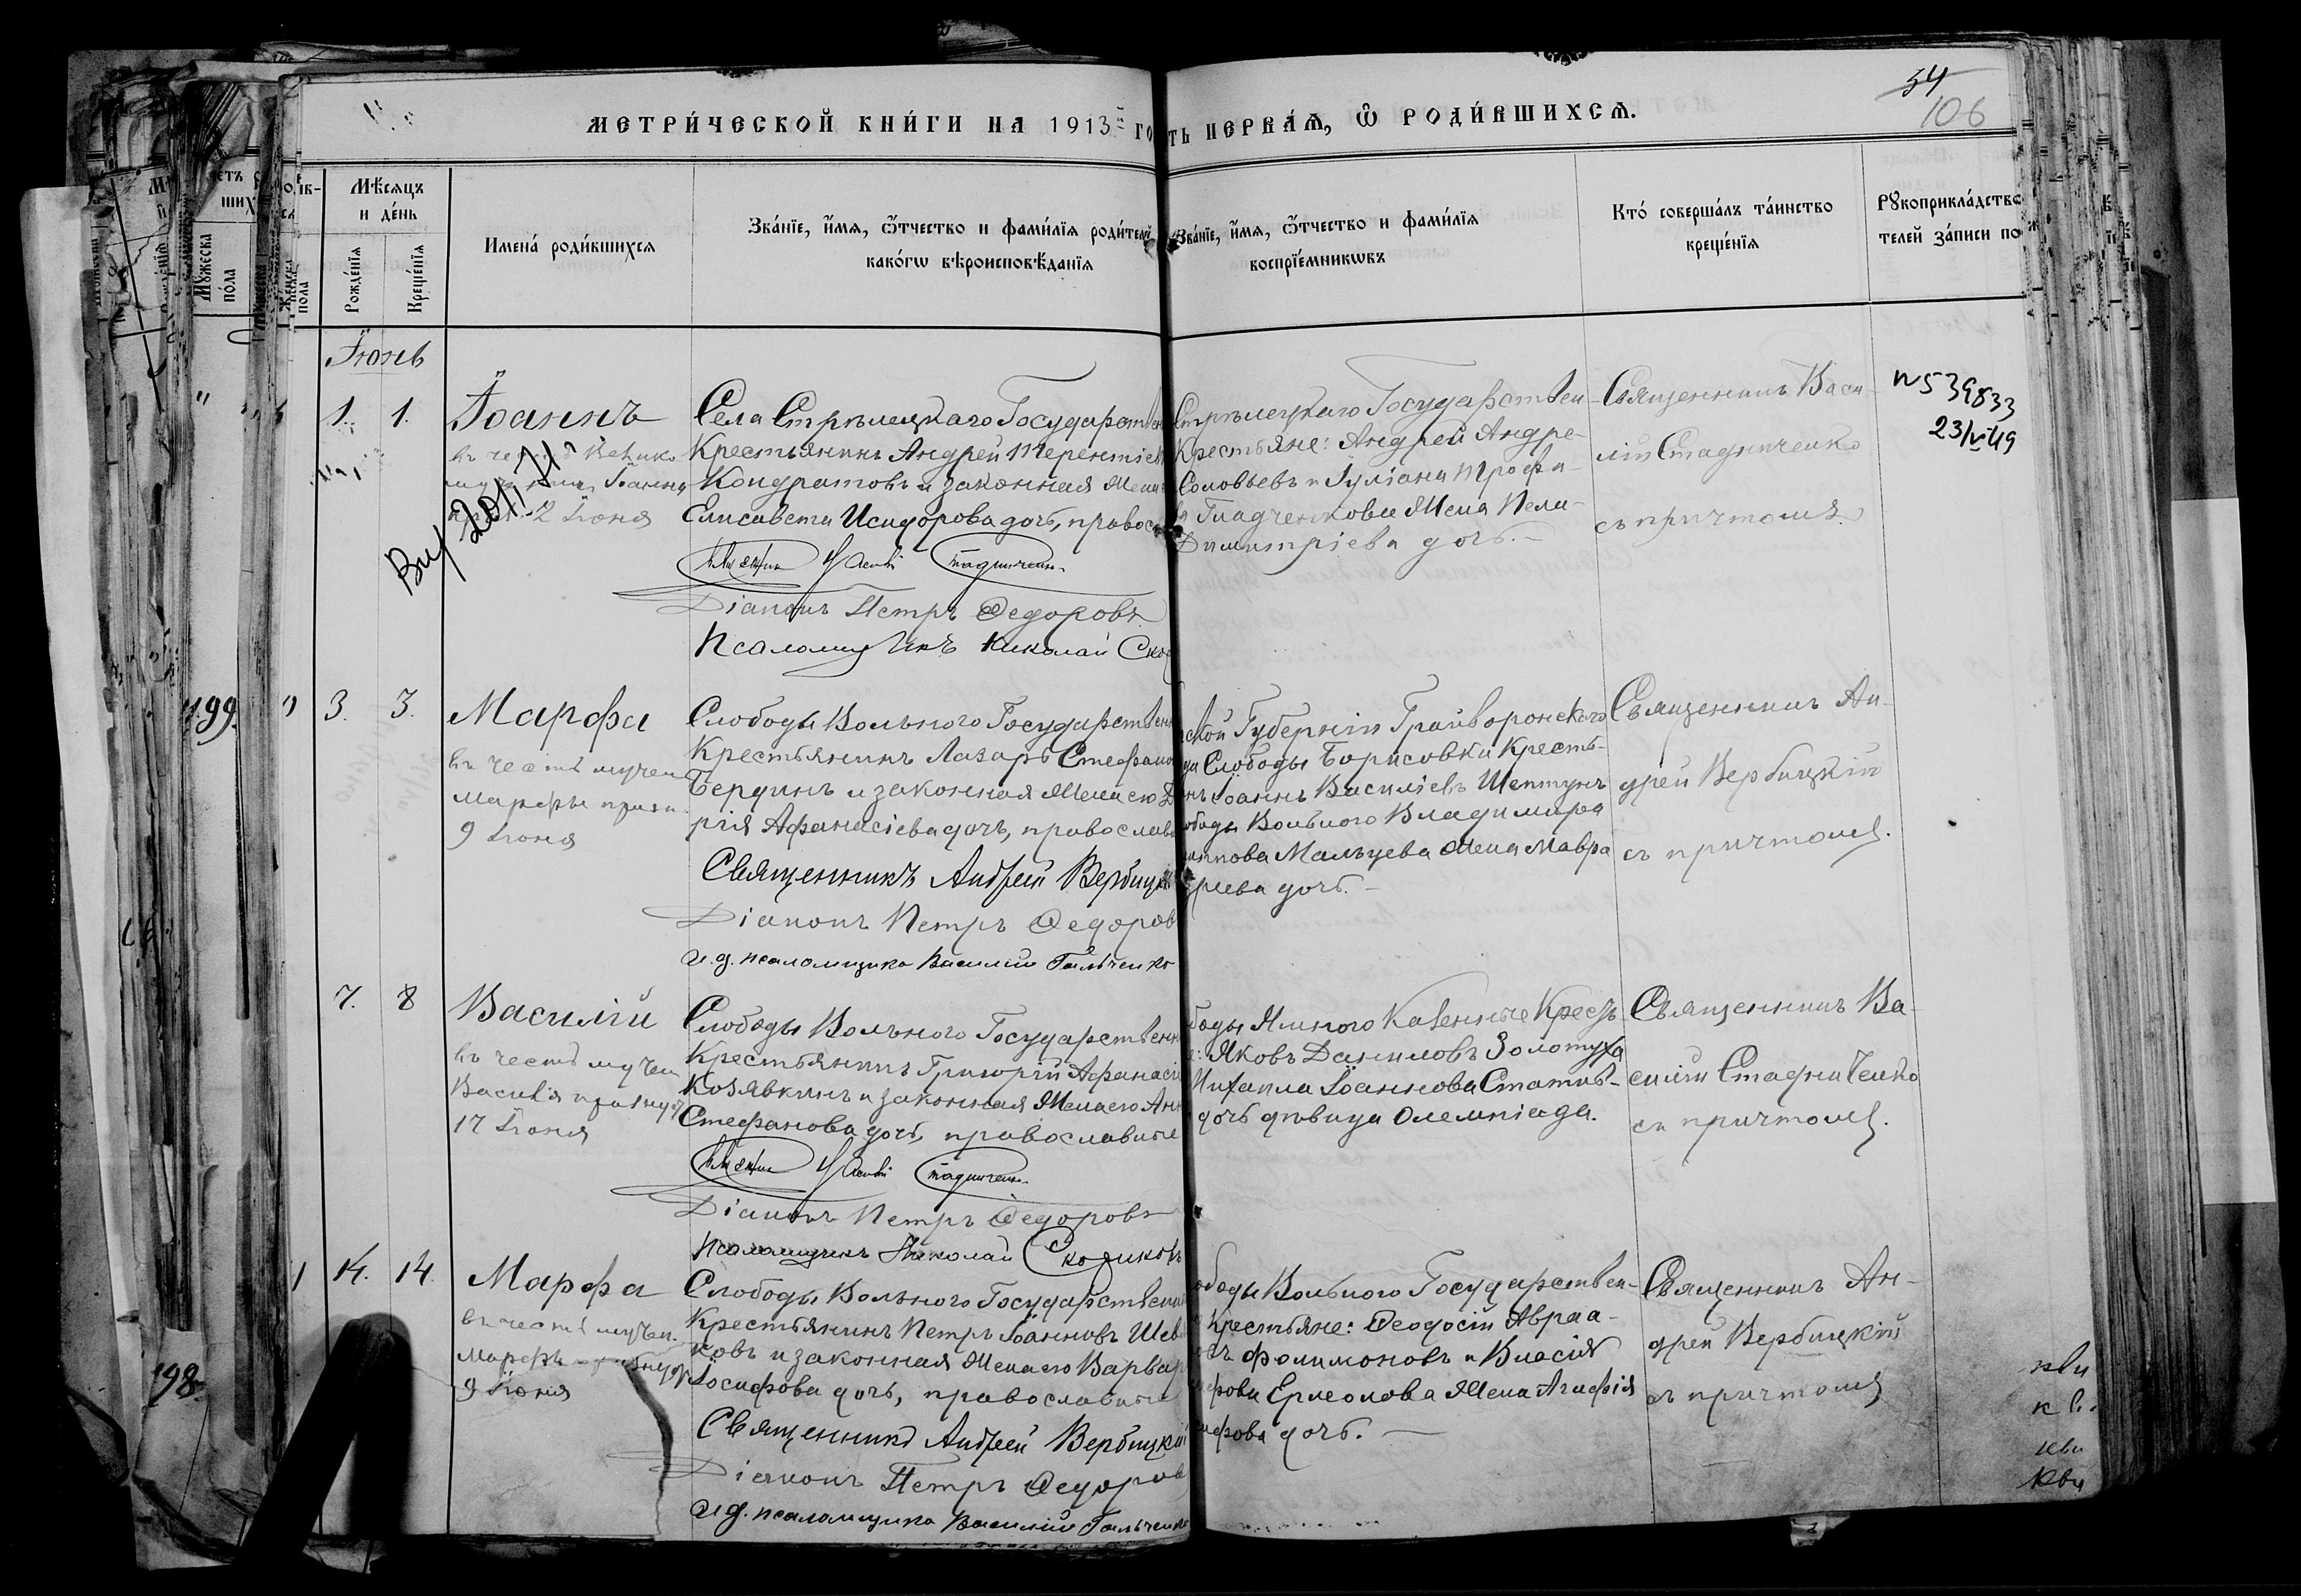 МЕТРИ́ЧЕСКОЙ КНИ́ГИ НА 1913й ГО
ТЬ ПЕРВА́Я, Ѿ РОДИ́ВШИХСЯ.
34
106
Мѣсяцъ и де́нь
Рожде́нія
Креще́нія
Имена́ роди́вшихся
Зва́ніе, и́мя, ѻ҆́тчество и фами́лія родителе
како́гѡ вѣроисповѣ́данія
Зва́ніе, и́мя, ѻ҆́тчество и фами́лія
воспріе́мникѡвъ
Кто́ соверша́лъ та́инство
креще́нія
Рꙋкоприкла́дство
телей за́писи по
Мꙋжеска по́ла
Женска пола
Іюнь
1. 1. Іоаннъ
2 Іюня
Села Стрѣлецкаго Государствен
Крестьянинъ Андрей Терентіев
Кондратовъ и законная жена
Елисавета Исидорова дочь, правос
Діаконъ Петръ Ѳедоровъ
Псаломщикъ Николай Ско
Стрѣлецкаго Государствен-
Крестьяне: Андрей Андре-
Соловьевъ и Іуліана Трофи-
Гладченкова жена Пела-
Димитріева дочь.-
Священникъ Васи-
лій Стадниченко
съ причтомъ
N539833
23/VI 49
199. 3. 3. Марфа
въ честь мучен
Марфы празн.
9 Іюня
Слободы Вольного Государствен
Крестьянинъ Лазарь Стефано
Бердинъ и законная жена его Д
рія Афанасіева дочь, православ
Священникъ Андрей Вербицкі
Діаконъ Петръ Ѳедоров
и.д. псаломщика Василій Гальченко
ской Губерніи Грайворонскаго
да Слободы Борисовки Кресть-
нъ Іоаннъ Василіевъ Шептунъ
ободы Вольного Владимира
Мальцева жена Мавра
дочь.-
Священникъ Ан-
дрей Вербицкій
съ причтомъ.
7. 8 Василій
въ честь мучен
Василія празнуя
17 Іюня
Слободы Вольного Государствен
Крестьянинъ Григорій Афанасі
Козявкинъ и законная жена его Анн
Стефанова дочь, православные
Діаконъ Петръ Ѳедоровъ
Псаломщикъ Николай
боды Ямного Казенные Кресть
Яковъ Даниловъ Золотуха
Михаила Іоаннова Статив-
дочь дѣвица Олемпіада.
Священникъ Ва-
силій Стадниченко
съ причтомъ.
1 14. 14. Марфа
въ честь мучен.
Марфы
9 Іюня
Слободы Вольного Государствен
Крестьянинъ Петръ Іоанновъ Шев
ковъ и законная жена его Варвар
Іосифова дочь, православные
Священникъ Андрей Вербицкій
Діаконъ Петръ Ѳедоров
и.д. псаломщика Василій Гальченко
ободы Вольного Государствен-
Крестьяне: Ѳеодосій Авраа-
Филимоновъ и Власія
Ермолова жена Агафія
сифова дочь. —
Священникъ Ан-
дрей Вербицкій
съ причтомъ
198.